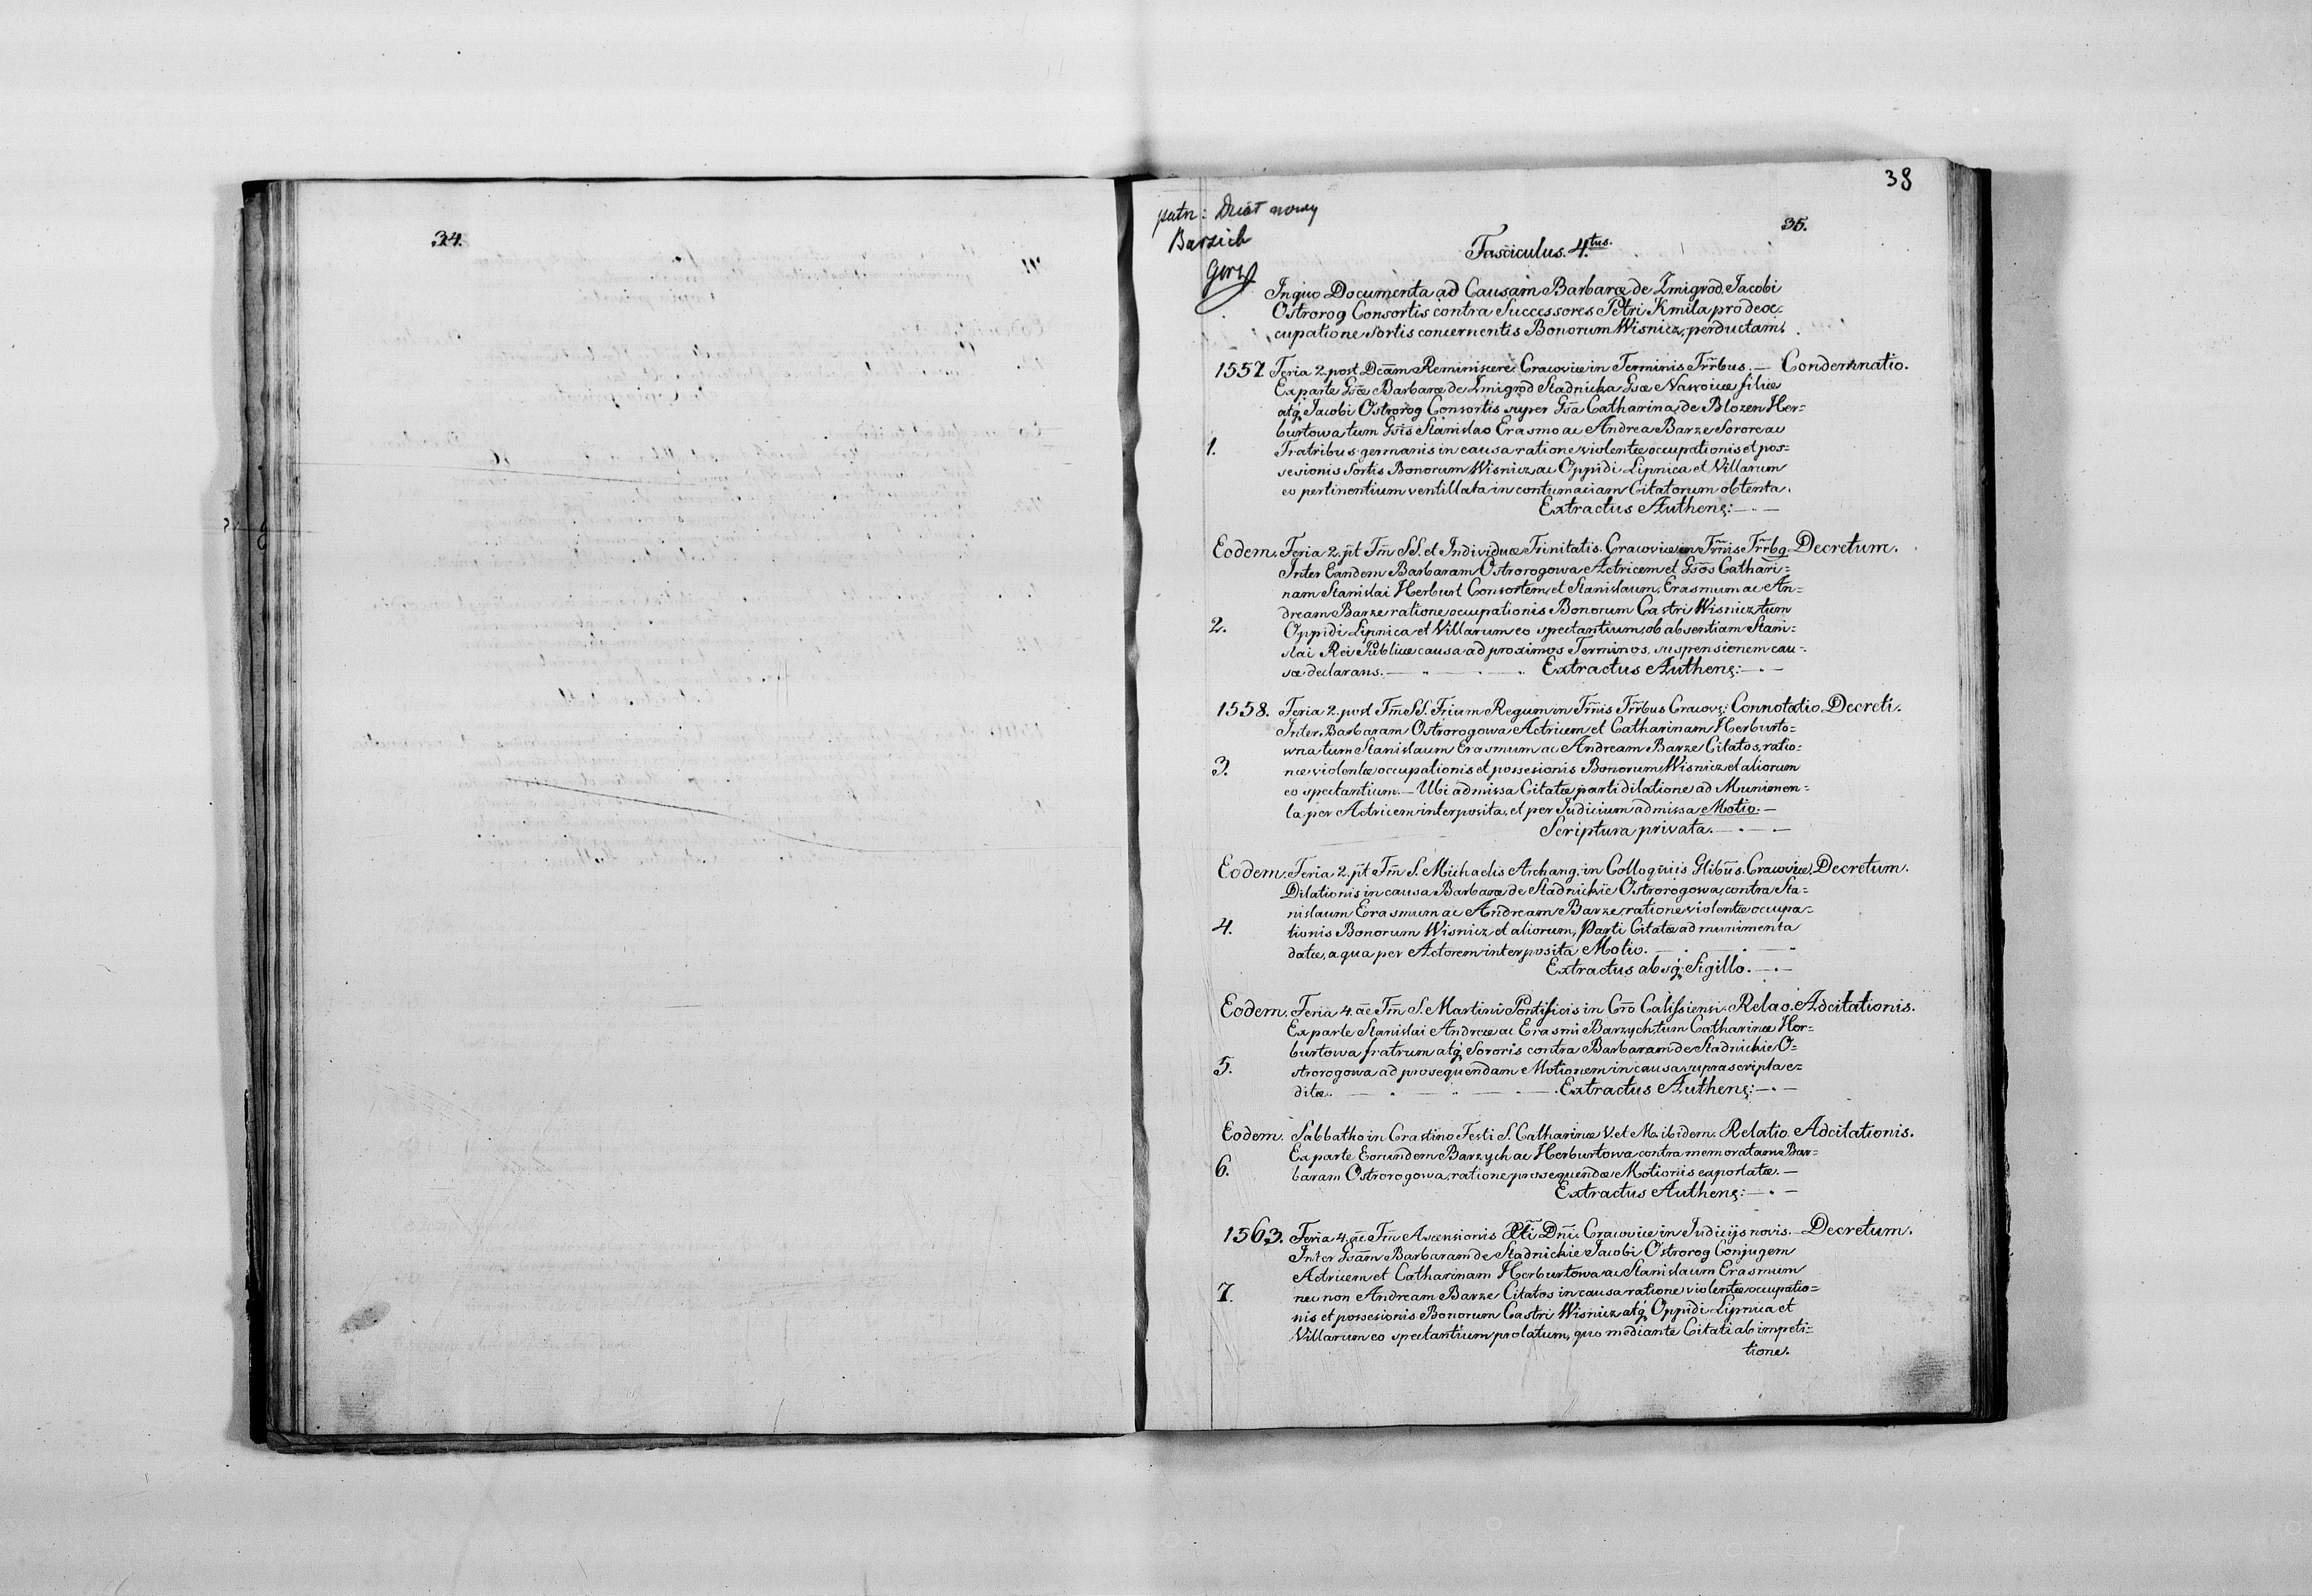 34.
38
patn: Dział nowy
Barzich
35.
Fasciculus. 4.tus.
In quo Documenta ad Causam Barbaræ de Zmigrod, Jacobi
Ostrorog Consortis contra Successores Petri Kmita pro deoc:
cupatione Sortis concernentis Bonorum Wisnicz, perductam.
1557. Feria 2. post Dcãm Reminiscere. Cracoviæ in Terminis Trr̃bus. — Condemnatio.
Ex parte Gsæ Barbaræ de Zmigrod Stadnicka Gsæ Nawoiæ filiæ
atq́ Jacobi Ostrorog Consortis super Gsã Catharina de Blozen Her=
burtowa tum Gsĩs Stanislao Erasmo ac Andrea Barze Sorore ac
1. Fratribus germanis in causa ratione violentæ occupationis et pos=
sesionis Sortis Bonorum Wisnicz ac Oppidi Lipnica et Villarum
eo pertinentium ventillata in contumaciam Citatorum obtenta.
Extractus Authenç: — · —
Eodem. Feria 2. p̃t Fm̃ SS. et Individuæ Trinitatis. Cracoviæ in Trm̃is Trr̃bq. Decretum.
Inter Eandem Barbaram Ostrorogowa Actricem et Gsõs Cathari=
nam Stanislai Herburt Consortem, et Stanislaum, Erasmum ac An=
dream Barze ratione occupationis Bonorum Castri Wisnicz tum
2. Oppidi Lipnica et Villarum eo spectantium, ob absentiam Stani=
slai Rei Publicæ causa ad proximos Terminos, suspensionem cau=
sæ declarans. — · — · Extractus Authenç: — · —
1558. Feria 2. post Fm̃ SS. Trium Regum in Trm̃is Trr̃bus Cracovç: Connotatio Decreti.
Inter Barbaram Ostrorogowa Actricem et Catharinam Herburto=
wna tum Stanislaum Erasmum ac Andream Barze Citatos, ratio=
3. næ violentæ occupationis et possesionis Bonorum Wisnicz et aliorum
eo spectantium. — Ubi admissa Citatæ parti dilatione ad Munimen=
ta, per Actricem interposita, et per Judicium admissa Motio. —
Scriptura privata. — · —
Eodem. Feria 2. p̃t Fm̃ S. Michaelis Archang. in Colloquiis Glibũs. Cracoviæ. Decretum.
Dilationis in causa Barbaræ de Stadnickie Ostrorogowa, contra Sta=
nislaum Erasmum ac Andream Barze, ratione violentæ occupa=
4. tionis Bonorum Wisnicz et aliorum, Parti Citatæ ad munimenta
datæ, a qua per Actorem interposita Motio. — · —
Extractus absq́ Sigillo. — · —
Eodem. Feria 4. ãe Fm̃ S. Martini Pontificis in Crõ Calissiensi. Relao. Adcitationis.
Ex parte Stanislai Andreæ ac Erasmi Barzych, tum Catharinæ Her=
burtowa fratrum atq́ Sororis contra Barbaram de Stadnickie O=
5. strorogowa ad prosequendam Motionem in causa suprascripta e=
ditæ. — · — · — Extractus Authenç: — · —
Eodem. Sabbatho in Crastino Festi S. Catharinæ V. et M. ibidem. Relatio Adcitationis.
Ex parte Eorundem Barzych ac Herburtowa contra memoratam Bar=
6. baram Ostrorogowa, ratione prosequendæ Motionis exportatæ. —
Extractus Authenç: — · —
1563. Feria 4. ãe Fm̃ Ascensionis Xti Dñi. Cracoviæ in Judicijs novis. — Decretum.
Inter Gsãm Barbaram de Stadnickie Jacobi Ostrorog Conjugem
Actricem et Catharinam Herburtowa ac Stanislaum Erasmum
7. nec non Andream Barze Citatos in causa ratione violentæ occupatio=
nis et possesionis Bonorum Castri Wisnicz atq́ Oppidi Lipnica et
Villarum eo spectantium prolatum, quo mediante Citati ab impeti=
tione.